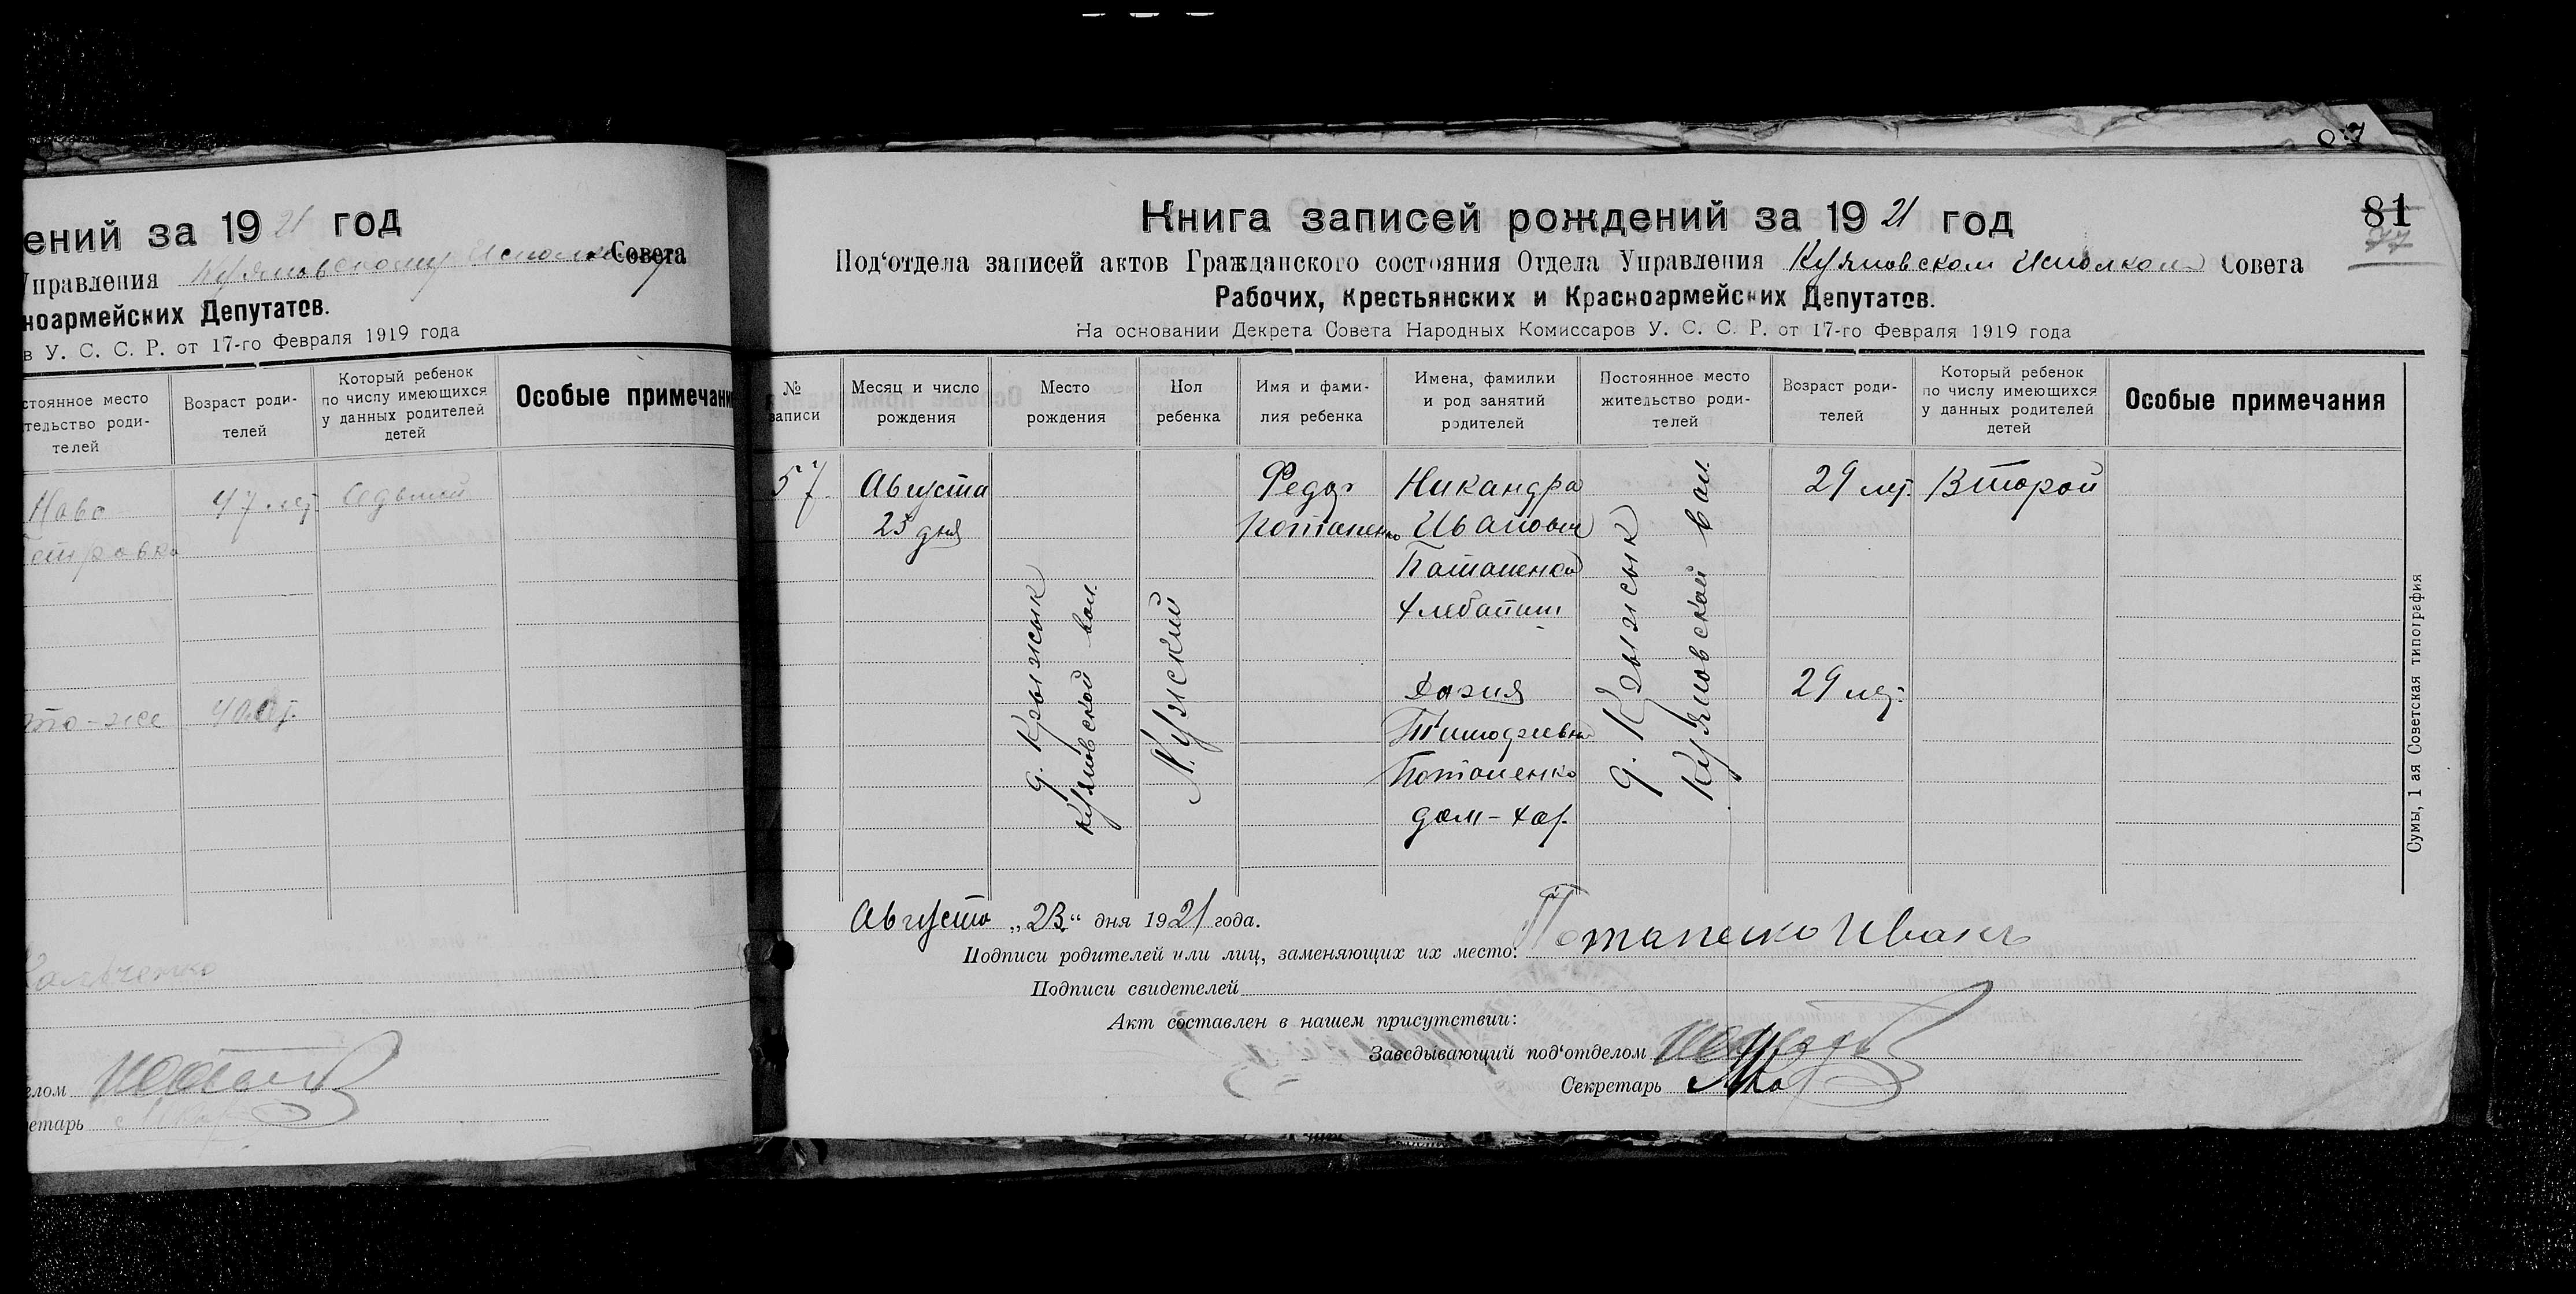 ений за 1921 год
Управления Куяновскому Исполкому Совета
ноармейских Депутатов.
в У. С. С. Р. от 17-го Февраля 1919 года
стоянное место
тельство роди-
телей
Возраст роди-
телей
Который ребенок
по числу имеющихся
у данных родителей
детей
Особые примечани
Ново
Петровка
47 лет
Седьмой
то-же
40 лет.
елом
етарь
07
81
77
Книга записей рождений за 1921 год
Под'отдела записей актов Гражданского состояния Отдела Управления Куяновском Исполком Совета
Рабочих, Крестьянских и Красноармейских Депутатов.
На основании Декрета Совета Народных Комиссаров У. С. С. Р. от 17-го Февраля 1919 года
№
записи
Месяц и число
рождения
Место
рождения
Пол
ребенка
Имя и фами-
лия ребенка
Имена, фамилии
и род занятий
родителей
Постоянное место
жительство роди-
телей
Возраст роди-
телей
Который ребенок
по числу имеющихся
у данных родителей
детей
Особые примечания
57.
Августа
23 дня
д. Крыжик
Куяновской вол.
Мужский
Федор
Потапенко
Никандра
Иванович
Потапенко
хлебопаш
Тимофеевна
Потапенко
дом-хоз.
д. Крыжик
Куяновской вол
29 лет.
29 лет.
Второй
Августа „23“ дня 1921 года.
Подписи родителей или лиц, заменяющих их место: Потапенко Иванъ
Подписи свидетелей
Акт составлен в нашем присутствии:
Заведывающий под'отделом
Секретарь
Сумы, 1 ая Советская типография